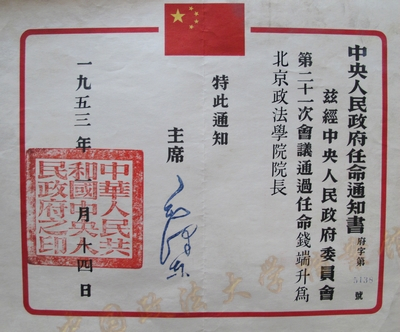 中央人民政府任命通知書
府字第 號
茲經中央人民政府委員會
第二十一次會議通過任命錢端升爲
北京政法學院院長
特此通知
主席
毛泽东
一九五三年 月十四日
中華人民共
和國中央人
民政府之印
中国政法大学